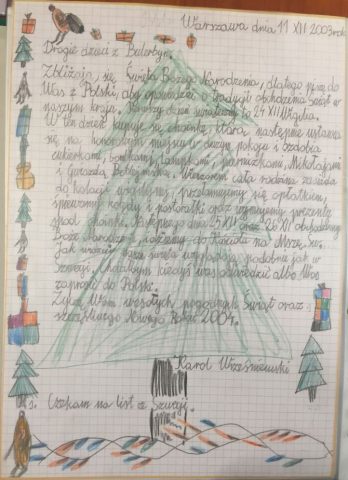 Warszawa dnia 11 XII 2003 rok
Drogie dzieci z Bulerbyn.
Zbliżają się Święta Bożego Narodzenia, dlatego piszę do
Was z Polski, aby opowiedzieć o tradycji obchodzenia świąt w
naszym kraju. Pierwszy dzień świąteczny to 24 XII Wigilia.
W ten dzień kupuje się choinkę, którą następnie ustawia
się na honorowym miejscu w dużym pokoju i ozdabia
cukierkami, bombkami, lampkami, pierniczkami, Mikołajami
i gwiazdą Betlejemską. Wieczorem cała rodzina zasiada
do kolacji wigilijnej, przełamujemy się opłatkiem,
śpiewamy kolędy i pastorałki oraz wyjmujemy prezenty
spod choinki. Następnego dnia 25 XII oraz 26 XII obchodzimy
Boże Narodzenie i idziemy do kościoła na Mszę św.
jak Wasze święta wyglądają podobnie jak w
Szwecji. Chciałbym kiedyś was odwiedzić albo Was
zaprosić do Polski.
Życzę Wam wesołych pogodnych Świąt oraz
szczęśliwego Nowego Roku 2004.
Karol Wrześniewski
s. Czekam na list z Szwecji.